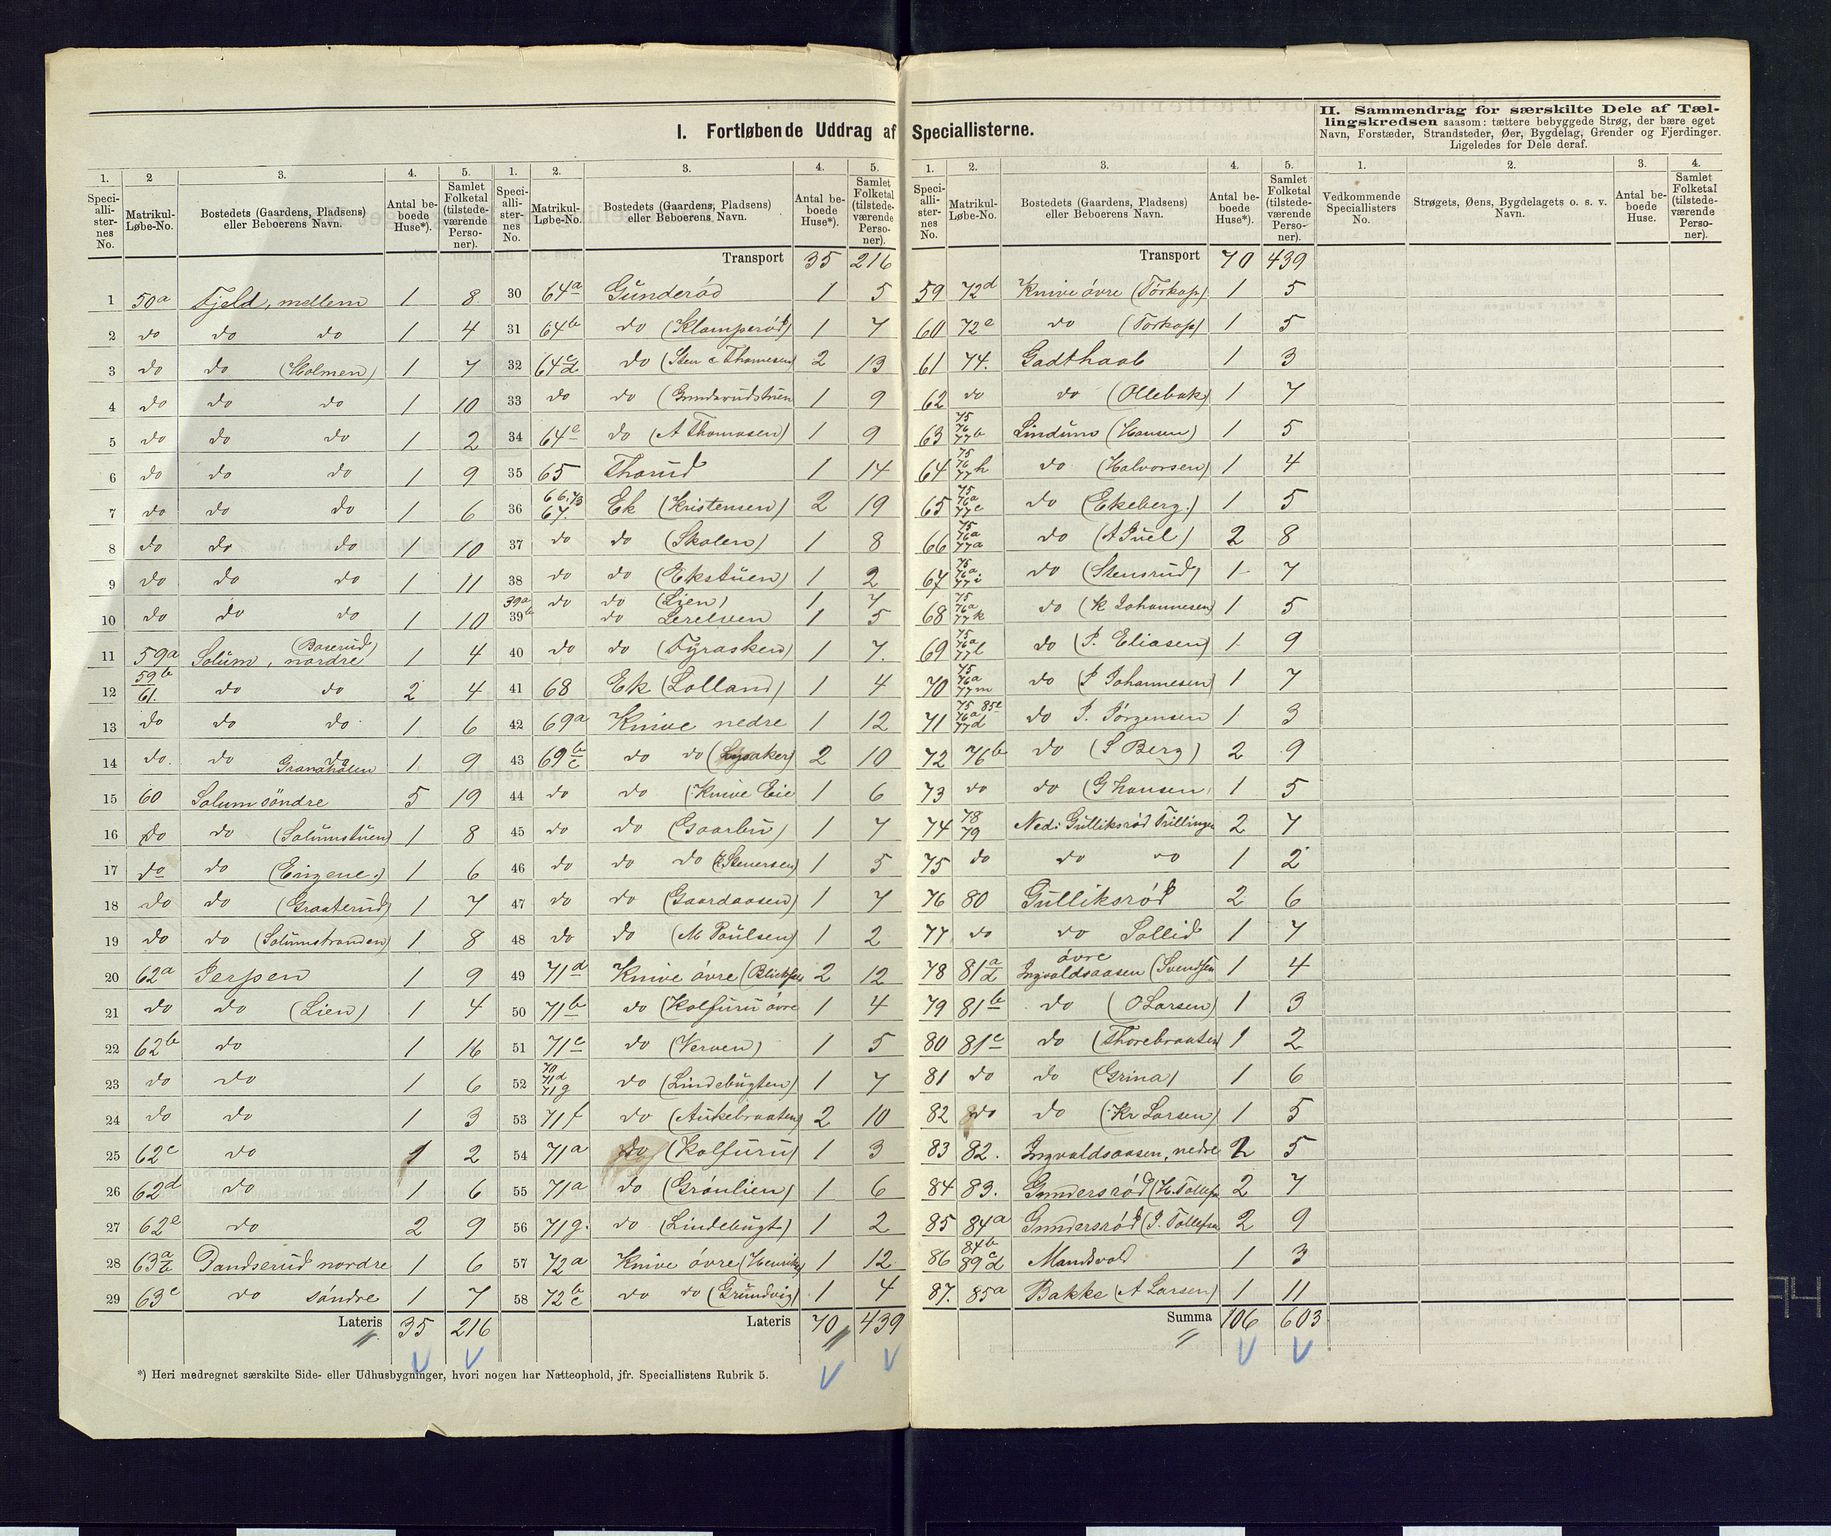 I. Fortløbende Uddrag af Speciallisterne.
1. 2 3. 4. 5.
Speciallisternes No. Matrikul-Løbe-No. Bostedets (Gaardens, Pladsens) eller Beboerens Navn. Antal beboede Huse*). Samlet Folketal (tilstedeværende Personer).
1 50a Fjeld, mellem 1 8
2 do do do 1 4
3 do do (Holmen) 1 7
4 do do do 1 10
5 do do do 1 2
6 do do do 1 9
7 do do do 1 6
8 do do do 1 10
9 do do do 1 11
10 do do do 1 10
11 59a Solum, nordre (Baserud) 1 4
12 59b/61 do do 2 4
13 do do do 1 6
14 do do do Granaholen 1 9
15 60 Solum söndre 5 19
16 do do (Solumstuen) 1 8
17 do do (Engene) 1 6
18 do do (Graaterud) 1 7
19 do do (Solumstranden) 1 8
20 62a Jerpen 1 9
21 do do (Lien) 1 4
22 62b do 1 16
23 do do 1 6
24 do do 1 3
25 62c do 1 2
26 62d do 1 6
27 62e do 2 9
28 63a/b Dandserud nordre 1 6
29 63c do söndre 1 7
Lateris 35 216
1. 2. 3. 4. 5.
Speciallisternes No. Matrikul-Løbe-No. Bostedets (Gaardens, Pladsens) eller Beboerens Navn. Antal beboede Huse*). Samlet Folketal (tilstedeværende Personer).
Transport 35 216
30 64a Gunderöd 1 5
31 64b do (Klamperöd) 1 7
32 64c/d do (Sten c Thomesen) 2 13
33 do do (Gunderudstuen 1 9
34 64e do (A Thomasen) 1 9
35 65 Thorud 1 14
36 66.73 67. Ek (Kristensen) 2 19
37 do do (Skolen) 1 8
38 do do (Ekstuen) 1 2
39a do do (Lien) 1 7
39b do Lerelven 1 5
40 do do (Fyrasken) 1 7
41 68 Ek (Lolland) 1 4
42 69a Knive nedre 1 12
43 69b/c do do (Lysaker) 2 10
44 do do (Knive Eie 1 6
45 do do (Gaarbu) 1 7
46 do do do (Stenersen) 1 5
47 do do (Gaardaasen) 1 7
48 do do (M Poulsen) 1 2
49 71d Knive övre 2 12
50 71b do (Kolfuru övre 1 4
51 71c do (Verven) 1 5
52 70 71d 71g do (Lindebugten) 1 7
53 71f do (Aukebraaten) 2 10
54 71a do (Kolfuru) 1 3
55 71a do (Grönlien) 1 6
56 71g. do (Lindebugt) 1 2
57 72a Knive övre (Henriks) 1 12
58 72b/c do do (Grundvig) 1 4
Lateris 70 439
*) Heri medregnet særskilte Side- eller Udhusbygninger, hvori nogen har Natteophold, jfr. Speciallistens Rubrik 5.
1. 2. 3. 4. 5.
Speciallisternes No. Matrikul-Løbe-No. Bostedets (Gaardens, Pladsens) eller Beboerens Navn. Antal beboede Huse*). Samlet Folketal (tilstedeværende Personer).
Transport 70 439
59 72d Knive övre (Torkop) 1 5
60 72e do (Torkop) 1 5
61 74. Godthaab 1 3
62 do do (Ollebak) 1 7
63 75 76 77b Lindum (Hansen) 1 5
64 75 76 77h do (Halvorsen) 1 4
65 75 76a 77c do (Ekeberg.) 1 5
66 75 76a 77a do (A Juel) 2 8
67 75 76a 77i do (Stensrud) 1 7
68 75 76a 77k do (K Johannesen) 1 5
69 75 76a 77l do (P. Eliasen) 1 9
70 75 76a 77m do (P Johannesen) 1 7
71 75 85e 76a 77d do P. Jörgensen 1 3
72 76b do (S Berg) 2 9
73 do do (G Hansen) 1 5
74 78 79 Ned: Gulliksröd Trillingen 2 7
75 do do do 1 2
76 80 Gulliksröd 2 6
77 do do Sollid 1 7
78 81a/d Ingvaldsaasen övre (Svendsen 1 4
79 81b do (O Larsen) 1 3
80 81c do (Thorebraaten 1 2
81 do do (Grina) 1 6
82 do do (Kr Larsen) 1 5
83 82. Ingvaldsaasen, nedre 2 5
84 83. Gundersröd (H. Tollefs 2 7
85 84a Gundersröd (J. Tollefsen 2 9
86 84b 89c/d Mandsvold 1 3
87. 85a Bakke (A Larsen) 1 11
Summa 106 603
II. Sammendrag for særskilte Dele af Tællingskredsen saasom: tættere bebyggede Strøg, der bære eget
Navn, Forstæder, Strandsteder, Øer, Bygdelag, Grender og Fjerdinger.
Ligeledes for Dele deraf.
1. 2. 3. 4.
Vedkommende Speciallisters No. Strøgets, Øens, Bygdelagets o. s. v. Navn. Antal beboede Huse. Samlet Folketal (tilstedeværende Personer).